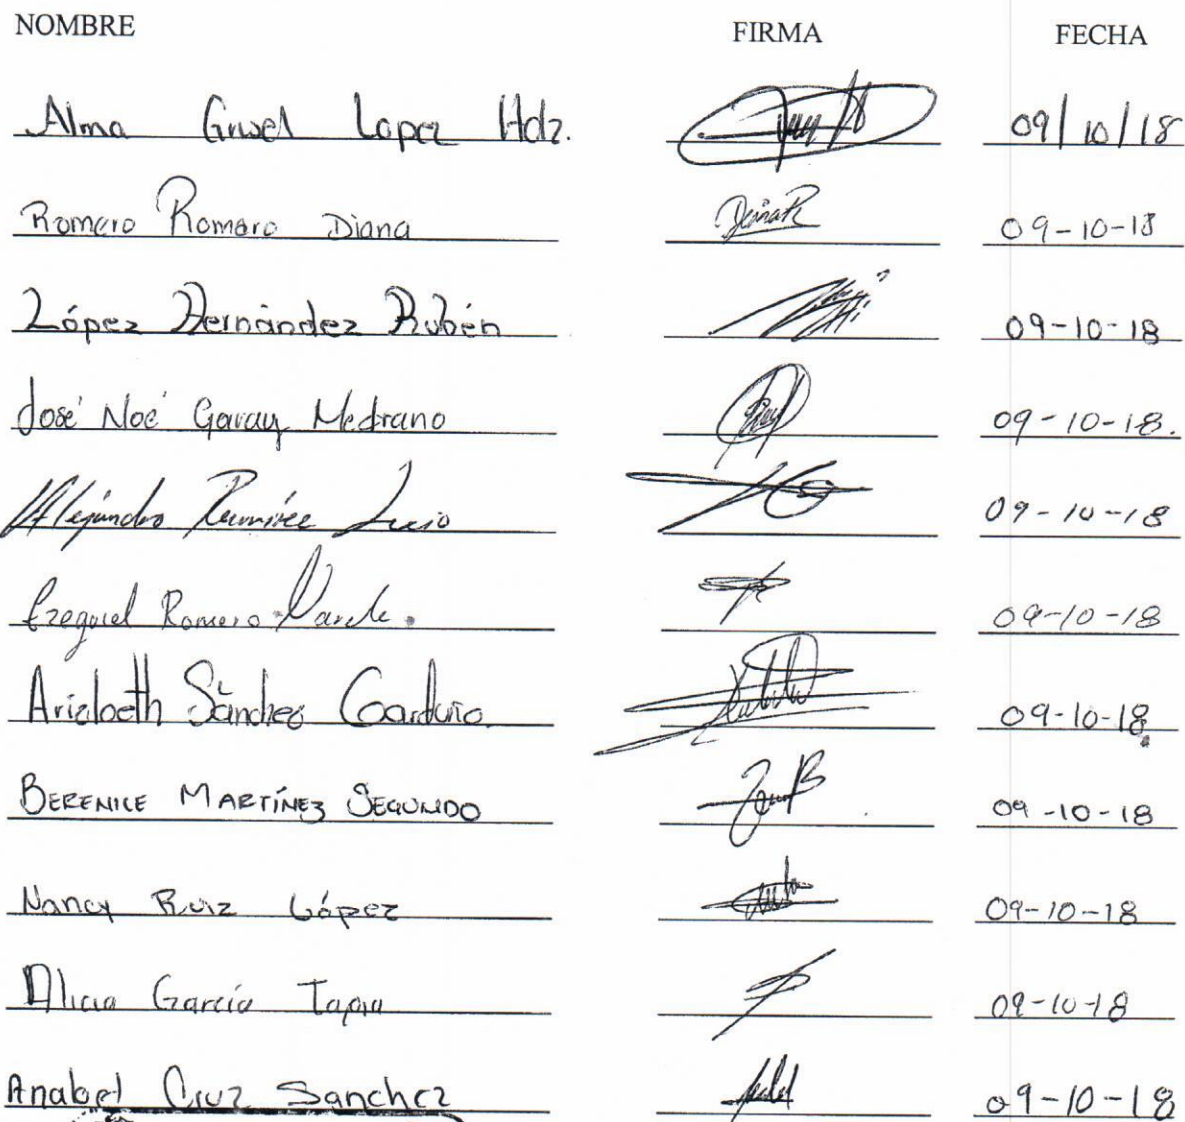 NOMBRE FIRMA FECHA
Alma Grisel Lopez Hdz. 09/10/18
Romero Romero Diana DianaR 09-10-18
López Hernández Rubén 09-10-18
José Noé Garay Medrano 09-10-18.
Alejandro Ramírez Lucio 09-10-18
Ezequiel Romero Varela. 09-10-18
Arizbeth Sánchez Garduño 09-10-18
BERENICE MARTÍNEZ SEGUNDO 09-10-18
Nancy Ruiz López 09-10-18
Alicia García Tapia 09-10-18
Anabel Cruz Sanchez 09-10-18